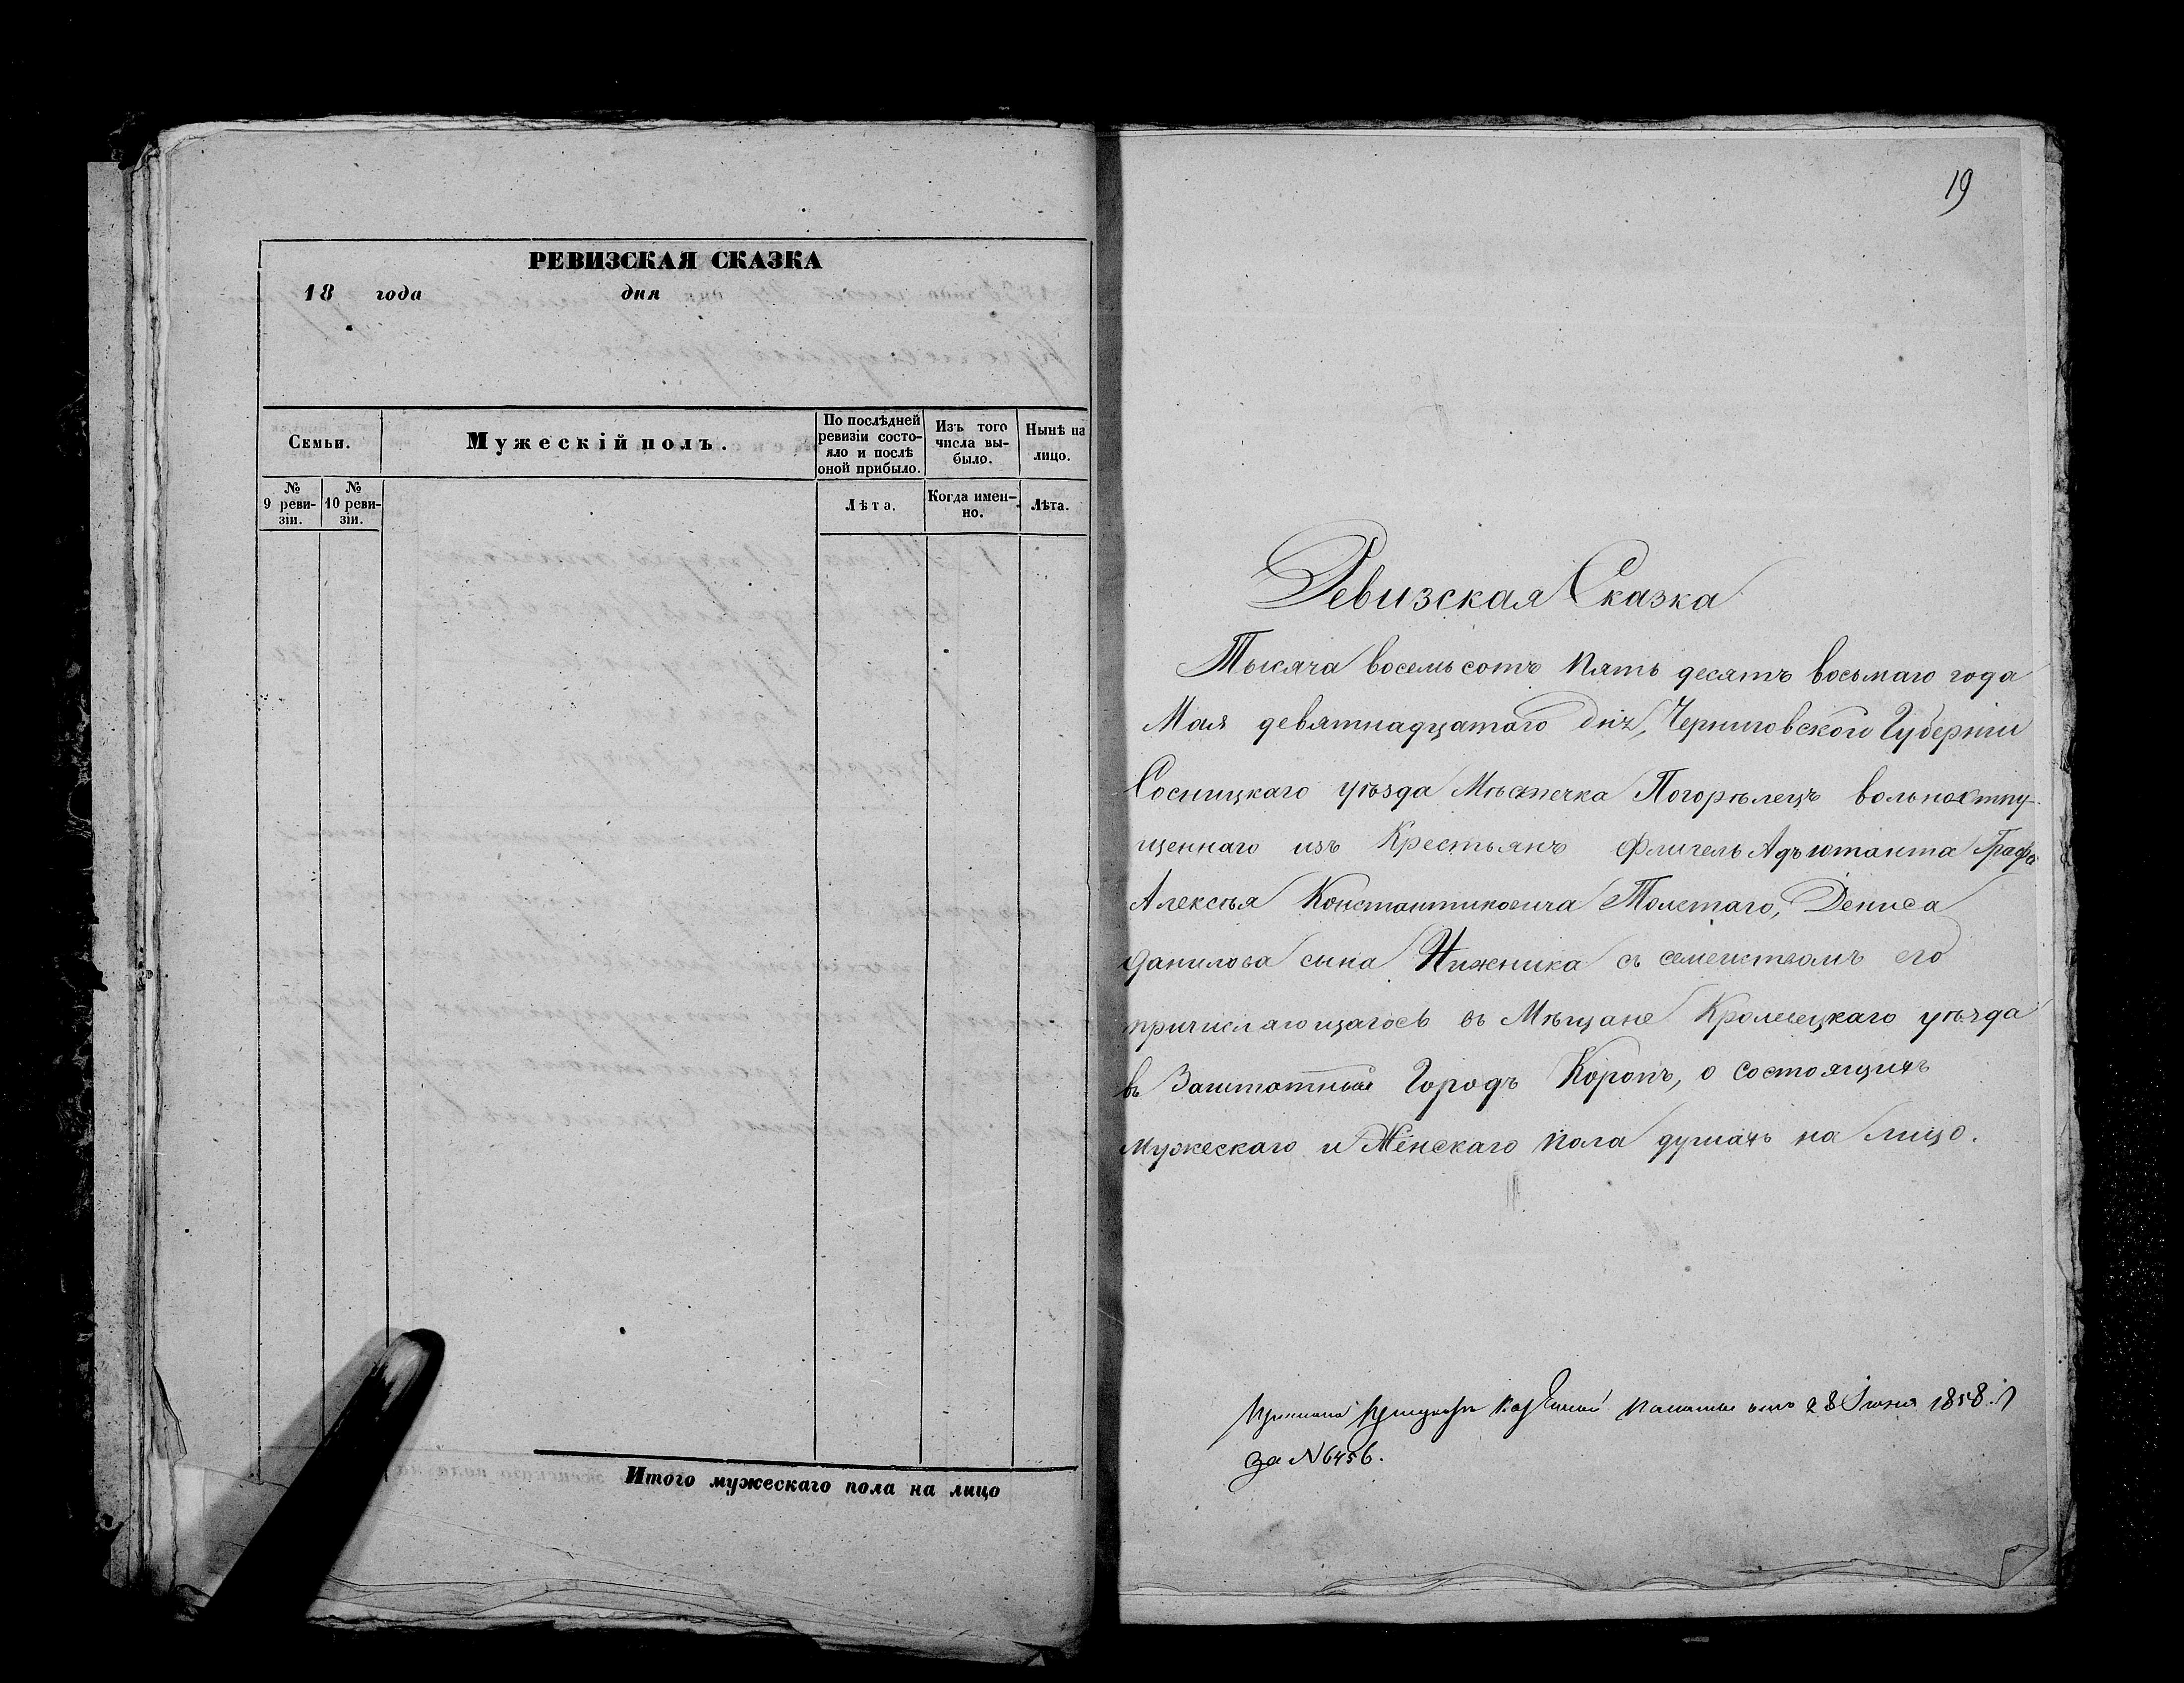 РЕВИЗСКАЯ СКАЗКА
18 года дня
Семьи.
Мужескій полъ.
По послѣдней
ревизіи состо-
яло и послѣ
оной прибыло.
Изъ того
числа вы-
было.
Нынѣ на
лицо.
№
9 реви-
зіи.
№
10 реви-
зіи.
Лѣта.
Когда имен-
но.
Лѣта.
Итого мужескаго пола на лицо
19
Ревизская Сказка
Тысяча восемьсотъ пять десятъ восьмаго года
Мая девятнадцатого дня, Черниговской Губерніи
Сосницкаго уѣзда Мѣстечка Погорѣлецъ вольноотпу-
щеннаго изъ Крестьянъ Флигель Адъютанта Графа
Алексѣя Константиновича Толстаго, Дениса
Данилова сына Нижника съ семействомъ его
причисляющагось въ Мѣщане Кролевецкаго уѣзда
въ Заштатный Городъ Коропъ, о состоящихъ
мужескаго и Женскаго пола душахъ на лицо.
Казенной Палаты отъ 28 Іюня 1858
за N 6456.